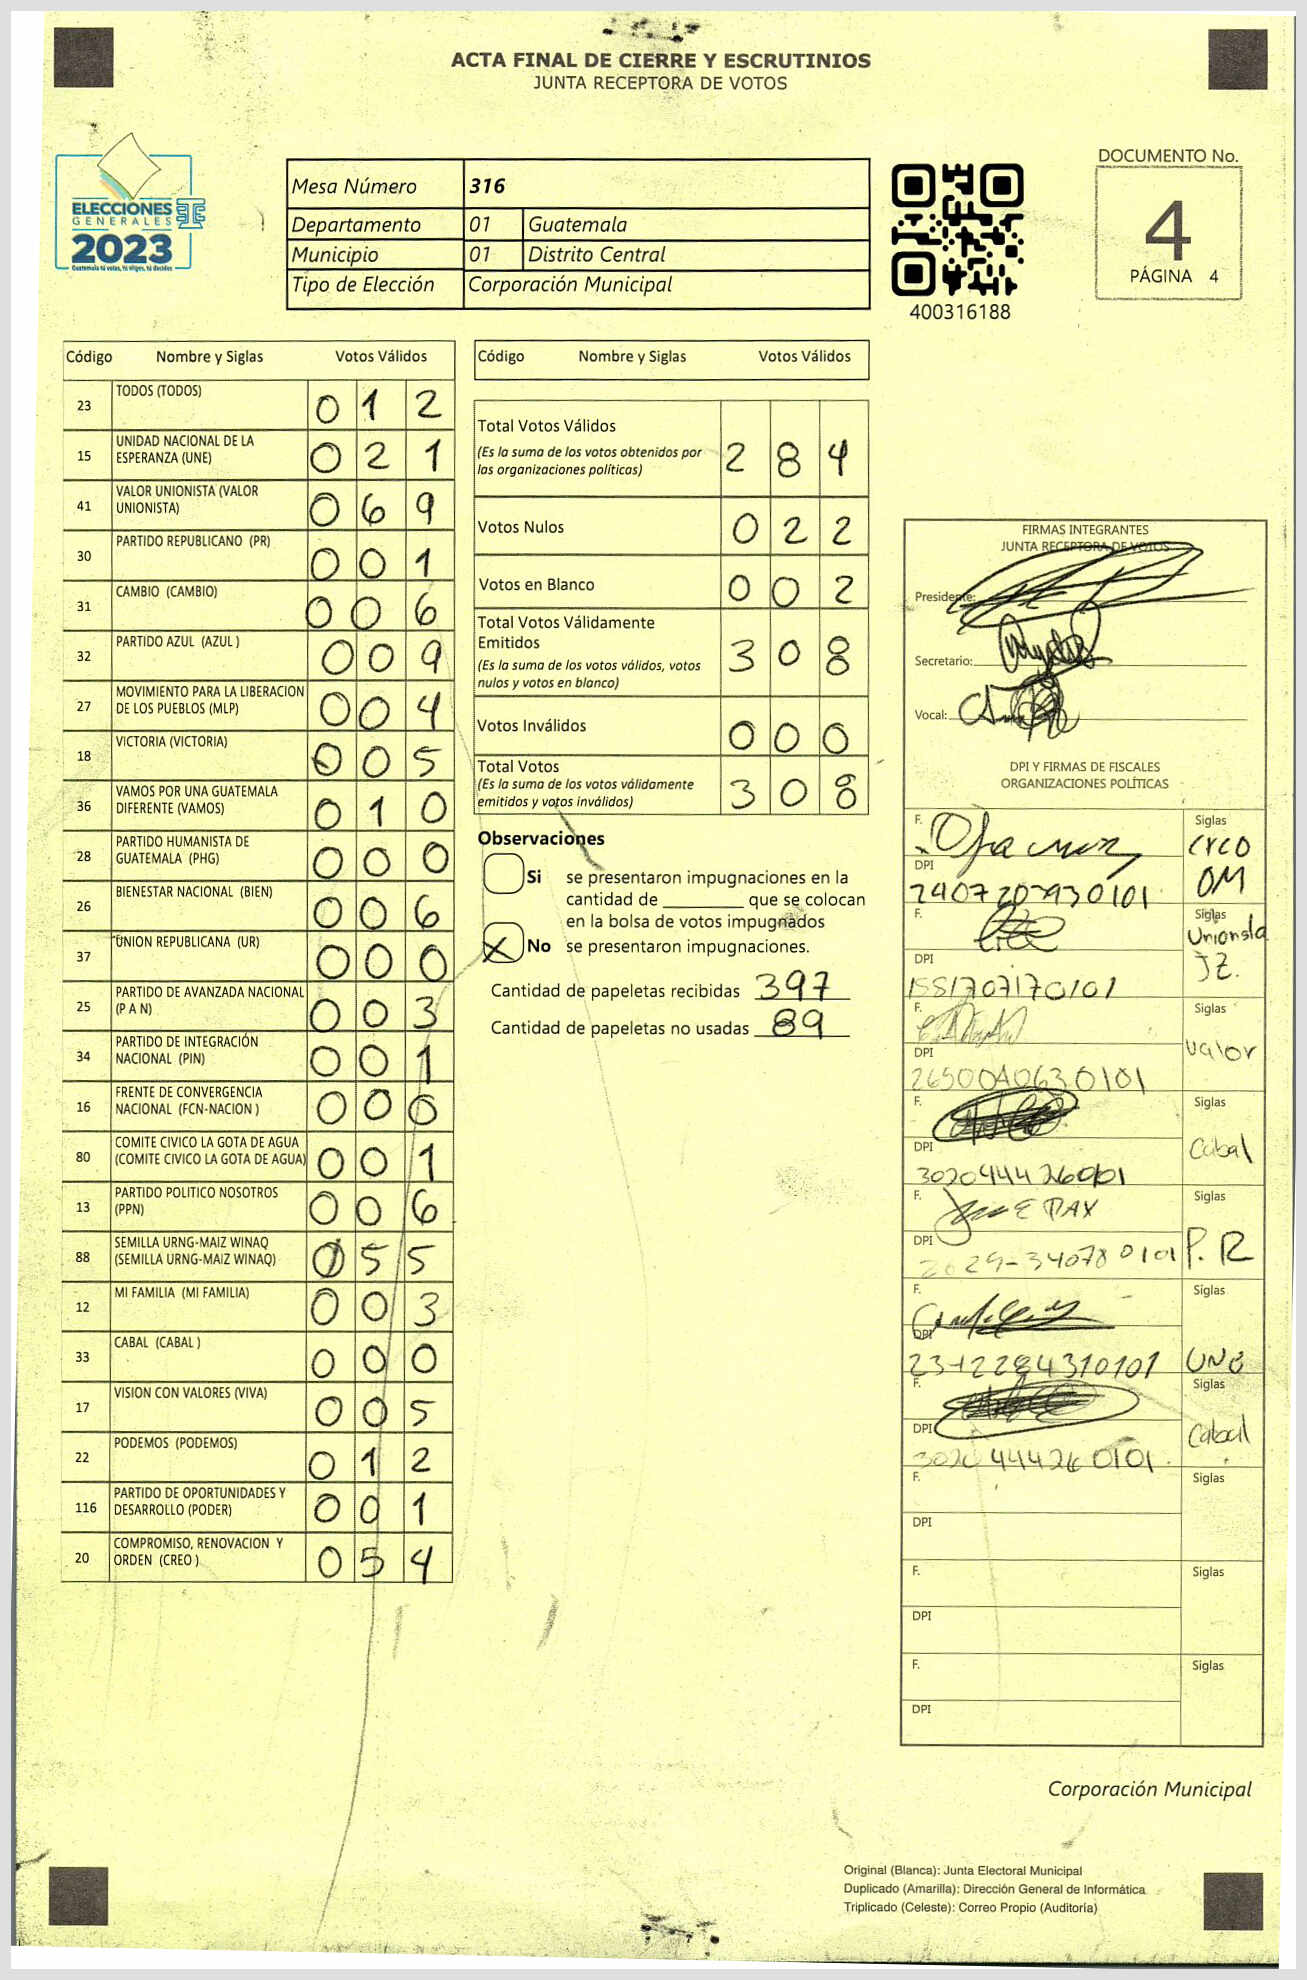 ACTA FINAL DE CIERRE Y ESCRUTINIOS
JUNTA RECEPTORA DE VOTOS
ELECCIONES
GENERALES
2023
Guatemala tú votas, tú eliges, tú decides
Mesa Número 316
Departamento 01 Guatemala
Municipio 01 Distrito Central
Tipo de Elección Corporación Municipal
400316188
DOCUMENTO No.
4
PÁGINA 4
Código Nombre y Siglas Votos Válidos
23 TODOS (TODOS) 0 1 2
15 UNIDAD NACIONAL DE LA
ESPERANZA (UNE) 0 2 1
41 VALOR UNIONISTA (VALOR
UNIONISTA) 0 6 9
30 PARTIDO REPUBLICANO (PR) 0 0 1
31 CAMBIO (CAMBIO) 0 0 6
32 PARTIDO AZUL (AZUL ) 0 0 9
27 MOVIMIENTO PARA LA LIBERACION
DE LOS PUEBLOS (MLP) 0 0 4
18 VICTORIA (VICTORIA) 0 0 5
36 VAMOS POR UNA GUATEMALA
DIFERENTE (VAMOS) 0 1 0
28 PARTIDO HUMANISTA DE
GUATEMALA (PHG) 0 0 0
26 BIENESTAR NACIONAL (BIEN) 0 0 6
37 UNION REPUBLICANA (UR) 0 0 0
25 PARTIDO DE AVANZADA NACIONAL
(P A N) 0 0 3
34 PARTIDO DE INTEGRACIÓN
NACIONAL (PIN) 0 0 1
16 FRENTE DE CONVERGENCIA
NACIONAL (FCN-NACION ) 0 0 0
80 COMITE CIVICO LA GOTA DE AGUA
(COMITE CIVICO LA GOTA DE AGUA) 0 0 1
13 PARTIDO POLITICO NOSOTROS
(PPN) 0 0 6
88 SEMILLA URNG-MAIZ WINAQ
(SEMILLA URNG-MAIZ WINAQ) 0 5 5
12 MI FAMILIA (MI FAMILIA) 0 0 3
33 CABAL (CABAL ) 0 0 0
17 VISION CON VALORES (VIVA) 0 0 5
22 PODEMOS (PODEMOS) 0 1 2
116 PARTIDO DE OPORTUNIDADES Y
DESARROLLO (PODER) 0 0 1
20 COMPROMISO, RENOVACION Y
ORDEN (CREO ) 0 5 4
Código Nombre y Siglas Votos Válidos
Total Votos Válidos
(Es la suma de los votos obtenidos por
las organizaciones políticas) 2 8 4
Votos Nulos 0 2 2
Votos en Blanco 0 0 2
Total Votos Válidamente
Emitidos
(Es la suma de los votos válidos, votos
nulos y votos en blanco) 3 0 8
Votos Inválidos 0 0 0
Total Votos
(Es la suma de los votos válidamente
emitidos y votos inválidos) 3 0 8
Observaciones
Si se presentaron impugnaciones en la
cantidad de ________ que se colocan
en la bolsa de votos impugnados
X No se presentaron impugnaciones.
Cantidad de papeletas recibidas 397
Cantidad de papeletas no usadas 89
FIRMAS INTEGRANTES
JUNTA RECEPTORA DE VOTOS
Presidente:
Secretario:
Vocal:
DPI Y FIRMAS DE FISCALES
ORGANIZACIONES POLÍTICAS
F. Siglas
DPI OM
F. Siglas
Unionsta
JZ.
DPI 1581707170101
F. Siglas
Valor
DPI
F. Siglas
Cabal
DPI
F. Siglas
P. R
DPI
F. Siglas
UNE
DPI
F. Siglas
Cabal
DPI 3020444260101
F. Siglas
DPI
F. Siglas
DPI
F. Siglas
DPI
Corporación Municipal
Original (Blanca): Junta Electoral Municipal
Duplicado (Amarilla): Dirección General de Informática
Triplicado (Celeste): Correo Propio (Auditoría)